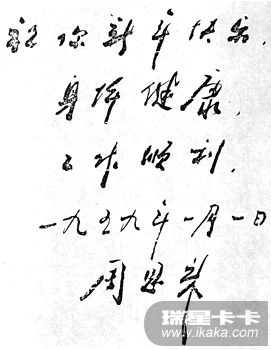 祝你新年快乐,
身体健康,
工作顺利.
一九五九年一月一日
周恩来
瑞星卡卡
www.ikaka.com